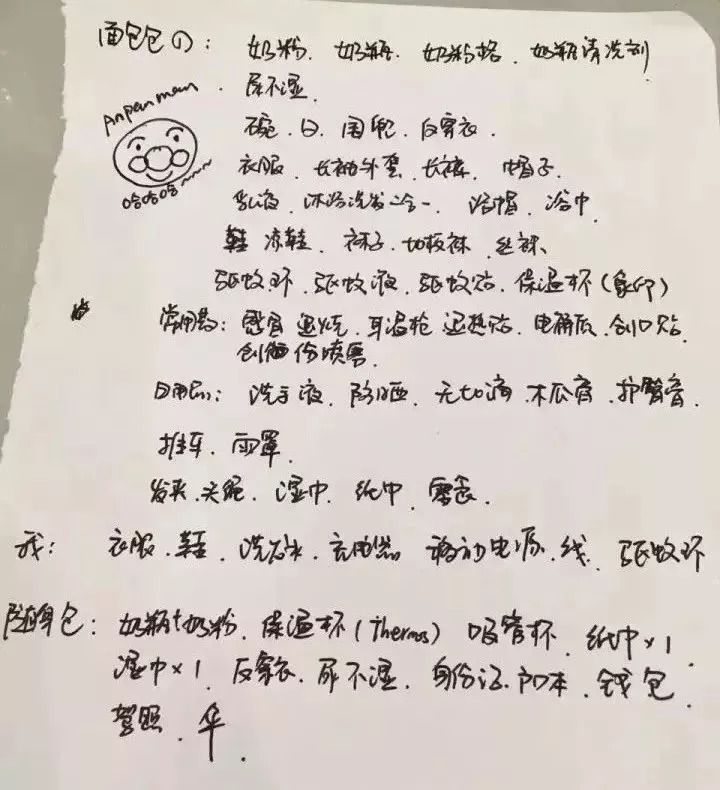 面包包の: 奶粉. 奶瓶. 奶粉格. 奶瓶清洗剂
尿不湿.
Anpanman
碗. 围兜. 反穿衣.
衣服. 长袖外套. 长裤. 帽子.
哈哈哈~~~
乳液. 沐浴洗发二合一. 浴帽. 浴巾.
鞋 凉鞋. 袜子. 地板袜.
驱蚊环. 驱蚊液. 驱蚊贴. 保温杯(象印)
常用药: 感冒 退烧. 耳温枪 退热贴. 电解质. 创口贴.
创伤喷雾.
日用品: 洗手液. 防晒. 无比滴. 木瓜膏. 护臀膏.
推车. 雨罩.
发夹. 头绳. 湿巾. 纸巾. 零食.
我: 衣服. 鞋. 充电器 移动电源. 线. 驱蚊环
随身包: 奶瓶+奶粉. 保温杯(Thermos) 吸管杯. 纸巾×1.
湿巾×1. 反穿衣. 尿不湿. 身份证. 户口本. 钱包.
驾照. 伞.